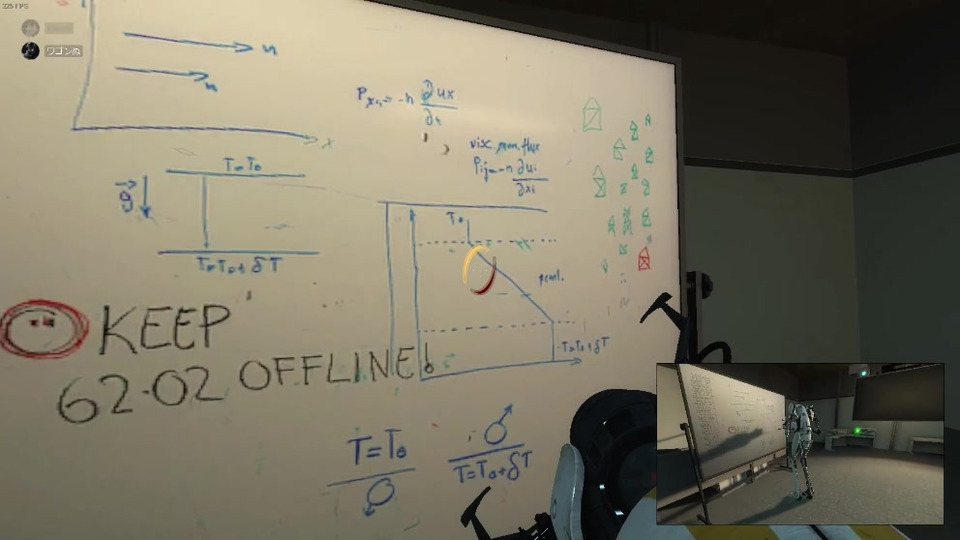 225 FPS
ワゴンぬ
n
n
x
Pxn = -η ∂ux
∂n
visc. mom. flux
Pij = -η ∂ui
∂xi
T=T₀
g
T=T₀+δT
T₀
T=T₀+δT
KEEP
62-02 OFFLINE!
T=T₀
T=T₀+δT